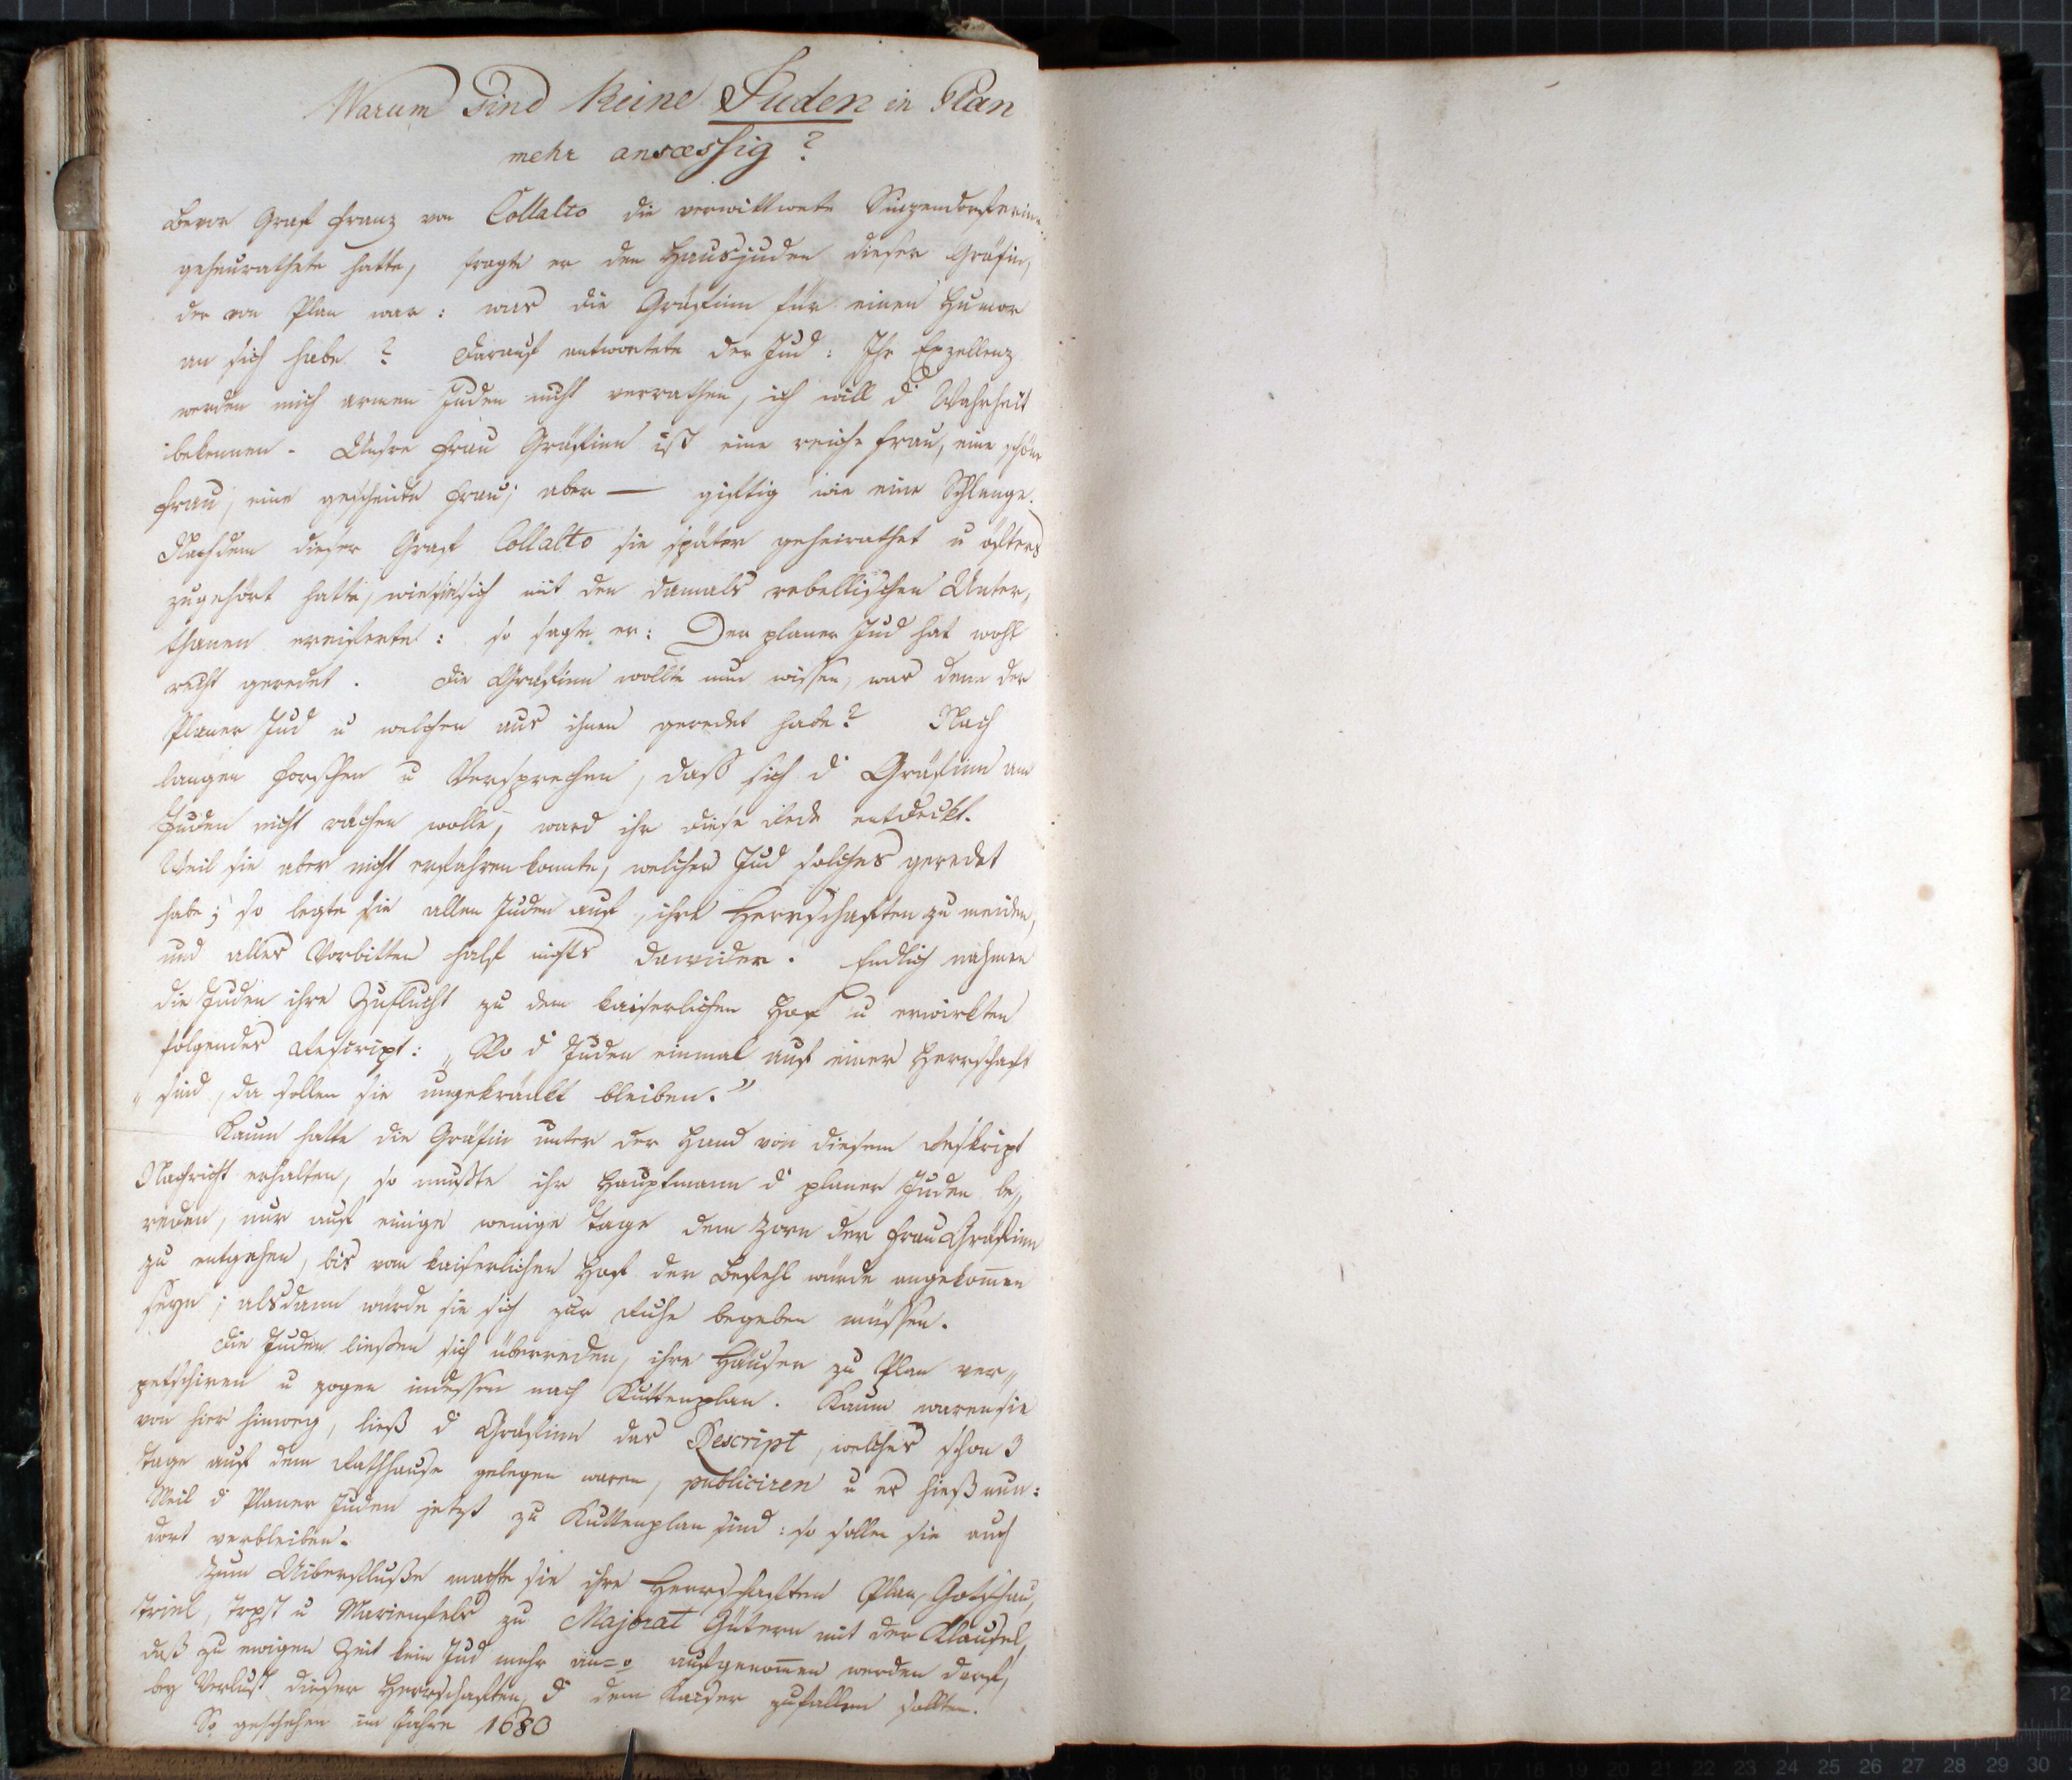 Warum sind keine Juden in Plan
mehr ansæssig?
Bevor Graf Franz von Collalto die verwittwete Sinzendorferinn
geheurathete hatte, fragte er den Hausjuden dieser Gräfin,
der von Plan war: was die Gräfinn für einen Humor
an sich habe? Darauf antwortete der Jud: Ihr Exzellenz
werden mich armen Juden nicht verrathen, ich will d' Wahrheit
bekennen. Unsre Frau Gräfinn ist eine reiche Frau, eine schöne
Frau, eine gescheidte Frau; aber — giftig wie eine Schlange.
Nachdem dieser Graf Collalto sie später geheirathet u öfters
zugehört hatte, wie sie sich mit den damals rebellischen Unter,
thanen ereiferte: so sagte er: Der planer Jud hat wohl
recht geredet. Die Gräfinn wollte nun wissen, was denn der
Planer Jud u welcher aus ihnen geredet habe? Nach
langen Forschen u Versprechen, dass sich d' Gräfinn am
Juden nicht rächen wolle, ward ihr diese Rede entdeckt.
Weil sie aber nicht erfahren konnte, welcher Jud solches geredet
habe; so legte sie allen Juden auf, ihre Herrschaften zu meiden,
und alles Vorbitten half nichts dawider. Endlich nahmen
die Juden ihre Zuflucht zu dem kaiserlichen Hof u erwirkten
folgendes Rescript: „Wo d' Juden einmal auf einer Herrschaft
„sind, da sollen sie ungekränkt bleiben."
Kaum hatte die Gräfin unter der Hand von diesem Reskript
Nachricht erhalten, so mußte ihr Hauptmann d' planer Juden be„
reden, nur auf einige wenige Tage dem Zorn der Frau Gräfinn
zu entgehen, bis vom kaiserlichen Hof der Befehl würde angekommen
seyn; alsdann würde sie sich zur Ruhe begeben müssen.
Die Juden ließen sich überreden, ihre Häuser zu Plan ver„
petschiren u zogen indessen nach Kuttenplan. Kaum waren sie
von hier hinweg, ließ d' Gräfinn das Rescript, welches schon 3
Tage auf dem Rathhause gelegen ware, publiciren u es hieß nun:
Weil d' Planer Juden jetzt zu Kuttenplan sind: so sollen sie auch
dort verbleiben.
Zum Uiberfluße machte sie ihre Herrschaften Plan, Gotschau,
Triel, u Marienfels zu Majorat Gütern mit der Klausel,
daß zu ewigen Zeit kein Jud mehr an= o aufgenommen werden darf,
bey Verlust dieser Herrschaften, d' dem Kaiser zufallen sollten.
So geschehen im Jahre 1680
12
7 8 9 10 11 12 13 14 15 16 17 18 19 20 21 22 23 24 25 26 27 28 29 30